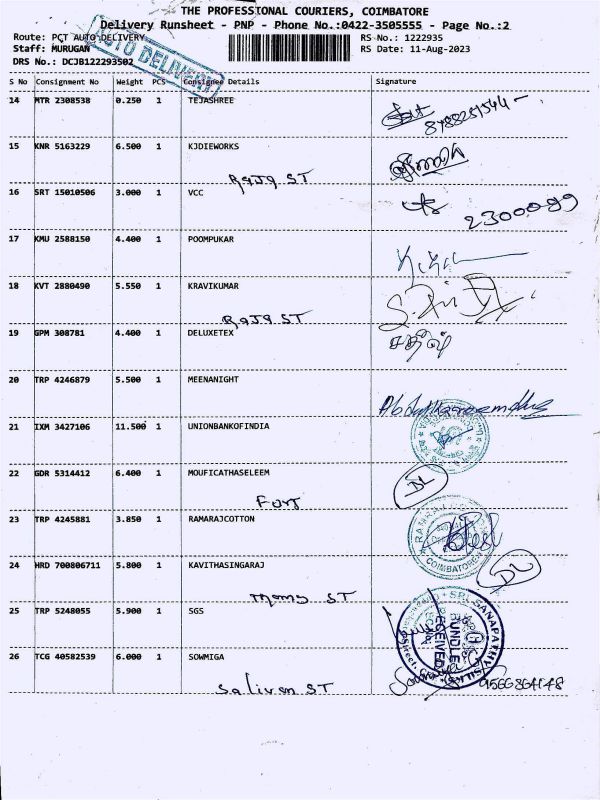 THE PROFESSIONAL COURIERS, COIMBATORE
Delivery Runsheet - PNP - Phone No.:0422-3505555 - Page No.:2
Route: PCT AUTO DELIVERY RS No.: 1222935
Staff: MURUGAN RS Date: 11-Aug-2023
DRS No.: DCJB122293502
AUTO DELIVERY
S No Consignment No Weight PCS Consignee Details Signature
14 MTR 2308538 0.250 1 TEJASHREE
15 KNR 5163229 6.500 1 KJDIEWORKS
Raja ST
16 SRT 15010506 3.000 1 VCC
17 KMU 2588150 4.400 1 POOMPUKAR
18 KVT 2880490 5.550 1 KRAVIKUMAR
Raja ST
19 GPM 308781 4.400 1 DELUXETEX
சதீஷ்
20 TRP 4246879 5.500 1 MEENANIGHT
21 IXM 3427106 11.500 1 UNIONBANKOFINDIA
22 GDR 5314412 6.400 1 MOUFICATHASELEEM
DL
Fort
23 TRP 4245881 3.850 1 RAMARAJCOTTON
COIMBATORE
24 HRD 700806711 5.800 1 KAVITHASINGARAJ
DL
Thomas ST
25 TRP 5248055 5.900 1 SGS
SRI GANAPATHY SILKS
BUNDLE RECEIVED
26 TCG 40582539 6.000 1 SOWMIGA
9566864148
Saliven ST